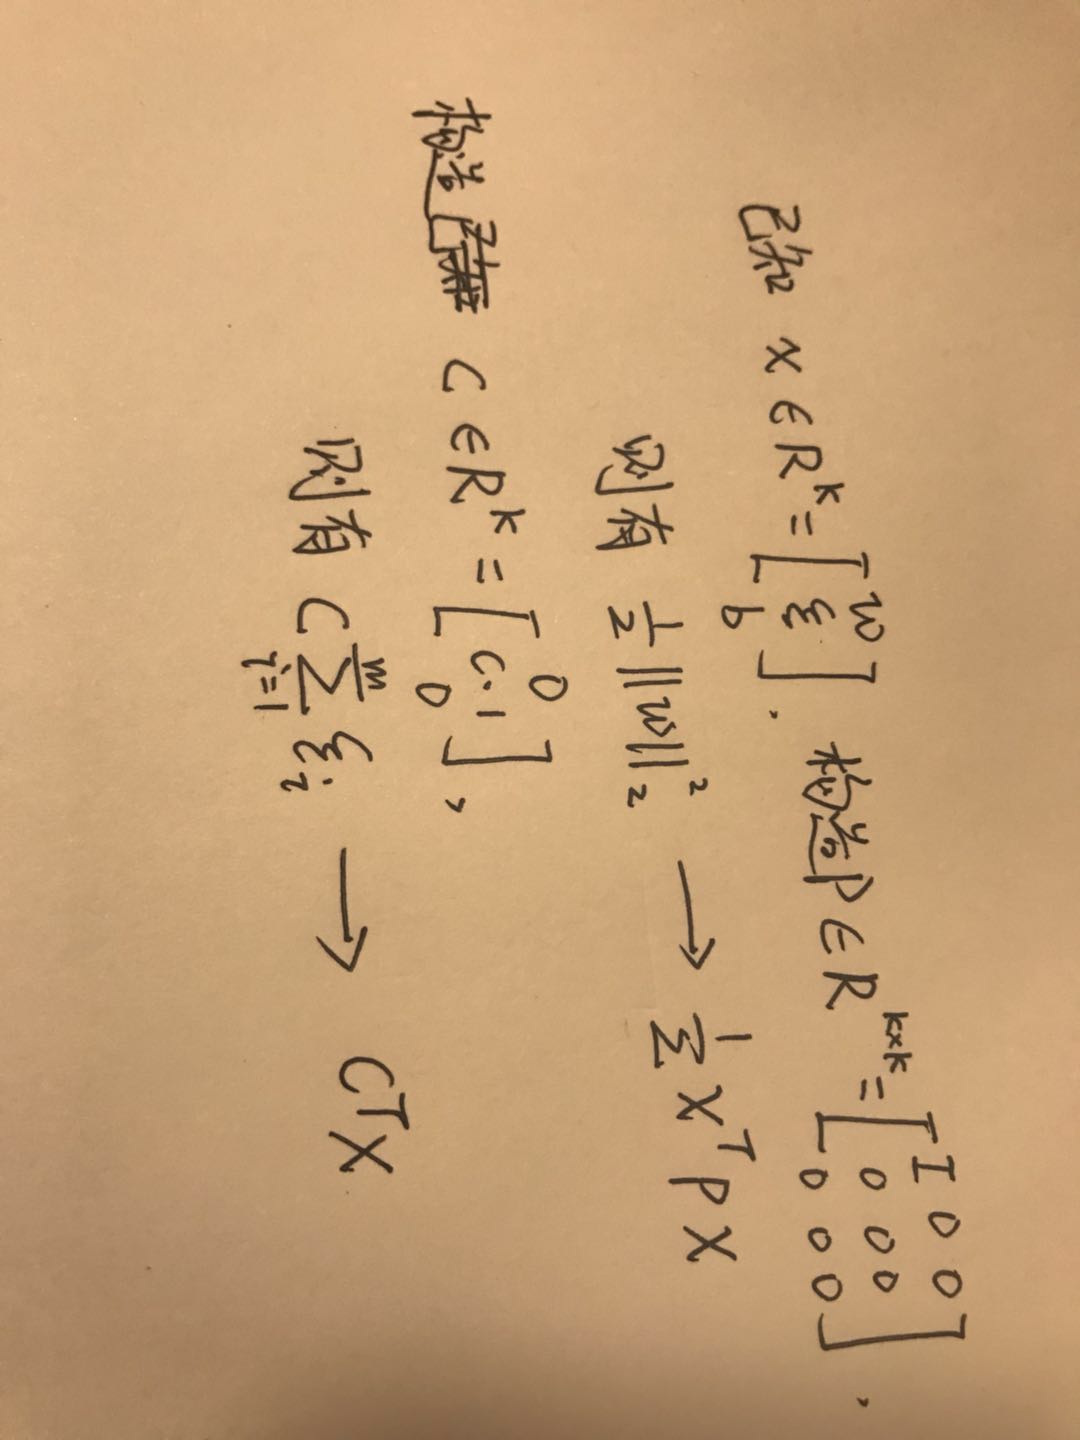 已知 x ∈ R^k = [w ξ b] . 构造 P ∈ R^{k×k} = [I 0 0; 0 0 0; 0 0 0] ,
则有 1/2 ||w||_2^2 → 1/Σ X^T P X
构造 已知 C ∈ R^k = [0 C·1 0] ,
则有 C Σ_{i=1}^{m} ξ_i → C^T X